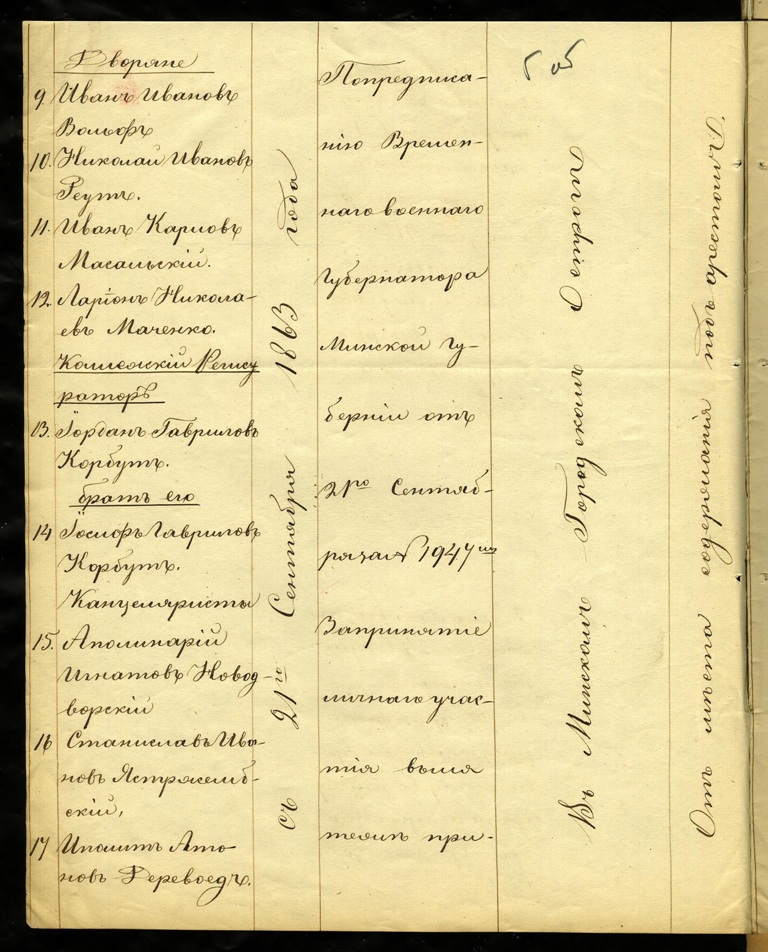 Дворяне
9. Иванъ Ивановъ
Вольфъ
10. Николай Ивановъ
Реутъ.
11. Иванъ Карловъ
Масальскій.
12. Ларіонъ Никола-
евъ Маченко.
Колежскій Регист
раторъ
13. Іорданъ Гавриловъ
Корбутъ.
братъ его
14 Іосифъ Гавриловъ
Корбутъ.
Канцеляристы
15. Аполинарій
Игнатовъ Новод-
ворскій
16 Станиславъ Ива-
новъ Ястржемб-
скій,
17 Иполитъ Анто-
новъ Деревоедъ.
съ 21го Сентября 1863 года
Попредписа-
нію Времен-
наго военнаго
Губернатора
Минской гу-
берніи отъ
21го Сентяб-
ря за №1947мъ
Запринятіе
личнаго учас-
тія
при-
Въ Минскомъ Городскомъ Острогѣ
Отъ мѣста содержанія подъ арестомъ.